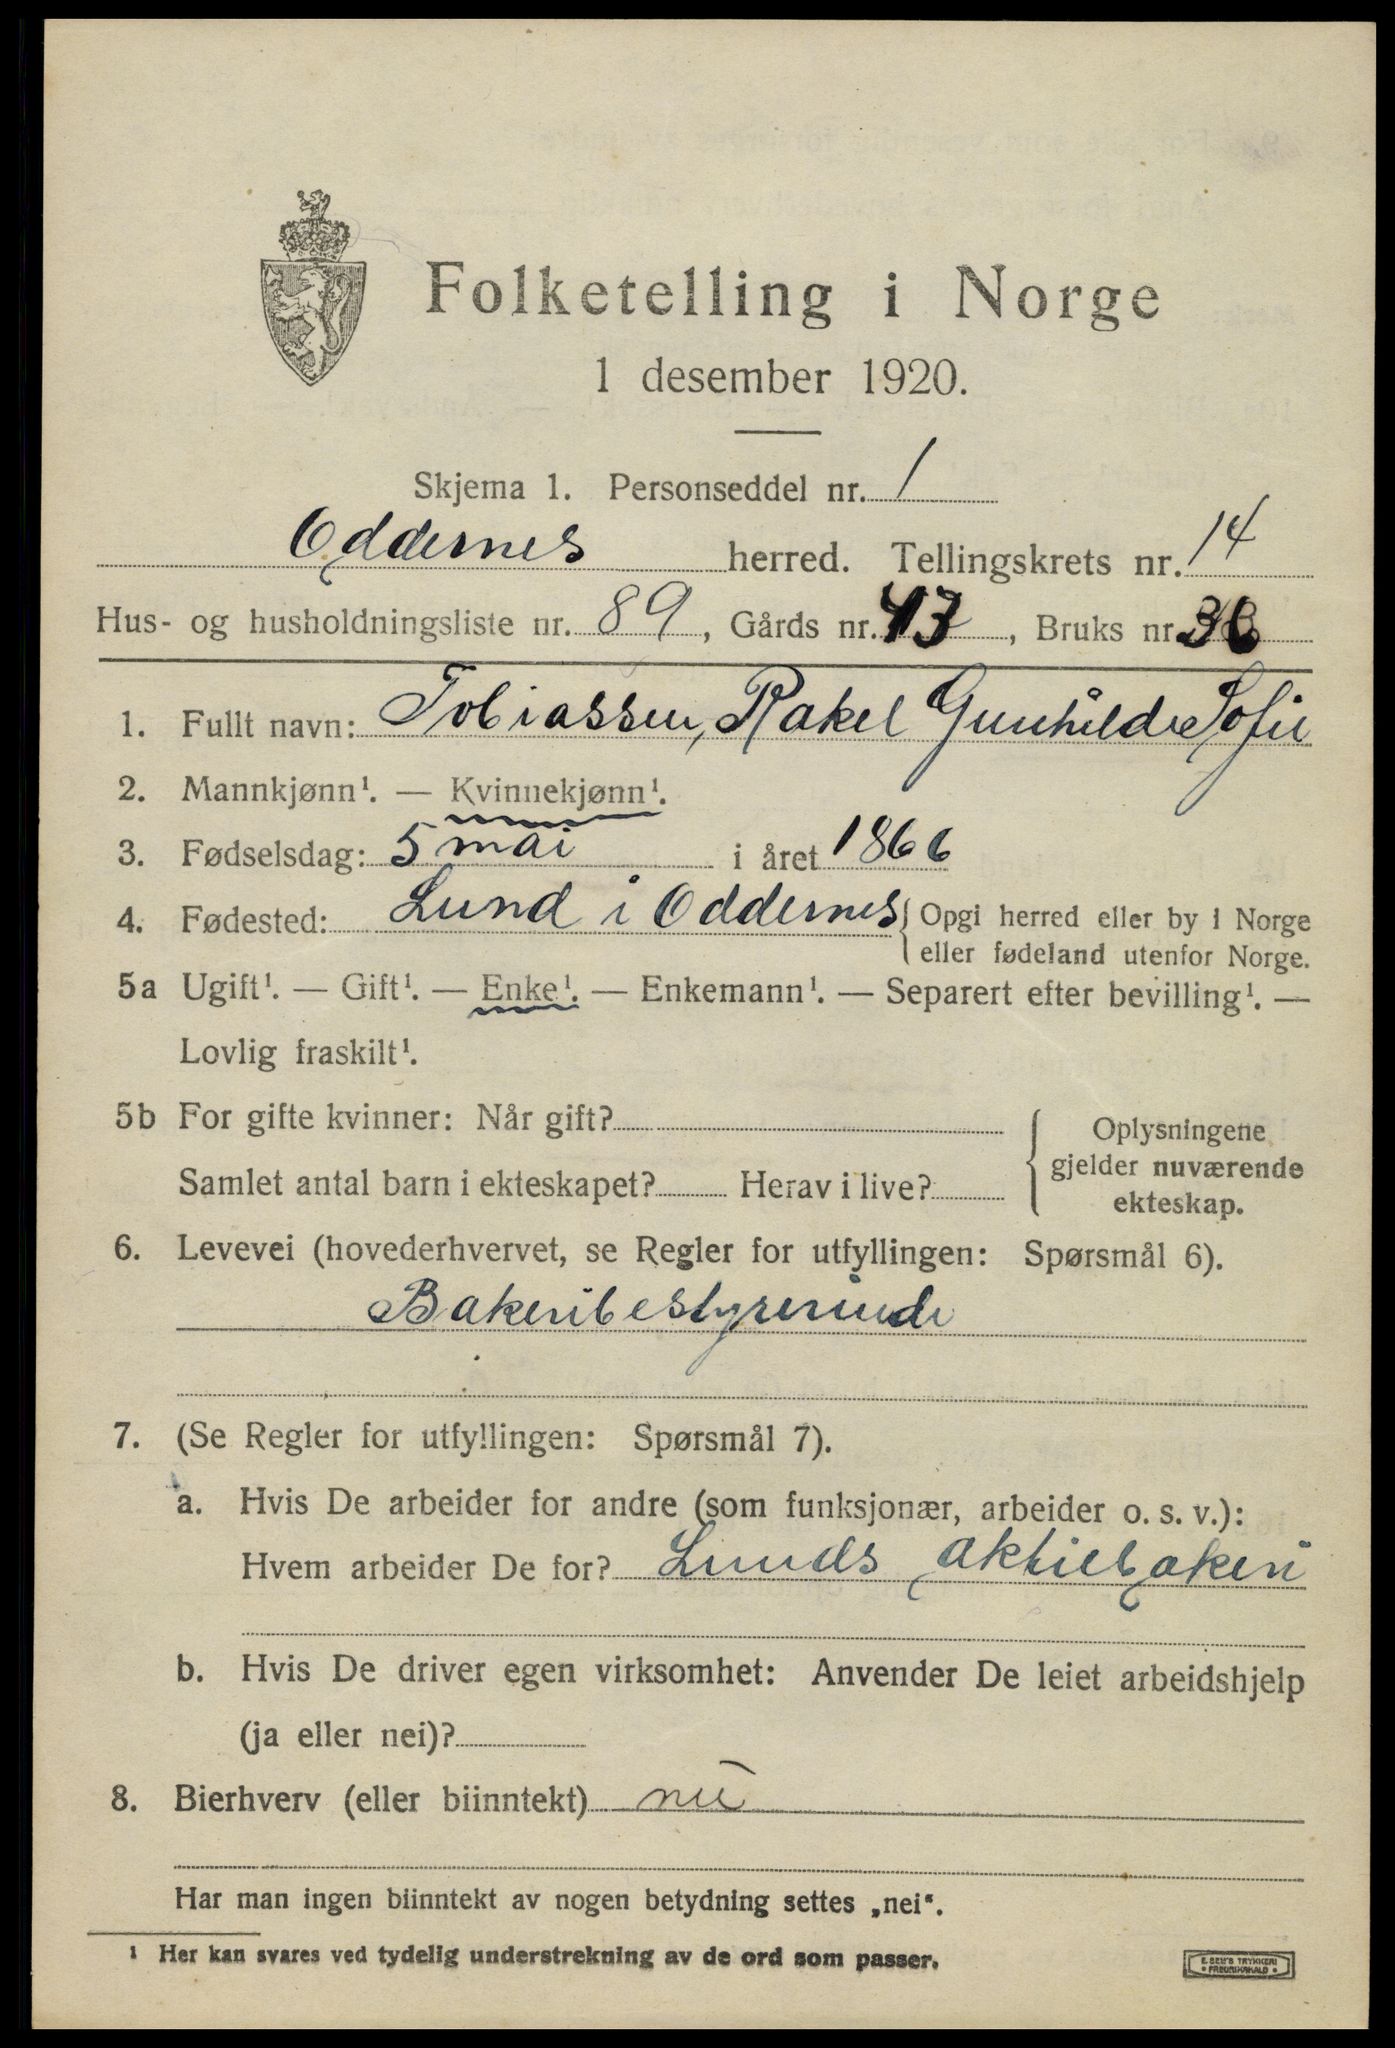 Folketelling i Norge
1 desember 1920.
Skjema 1. Personseddel nr. 1
Oddernes herred. Tellingskrets nr. 14
Hus- og husholdningsliste nr. 89, Gårds nr. 43, Bruks nr.
1. Fullt navn: Tobiassen, Rakel Gunhilde Sofie
2. Mannkjønn¹. — Kvinnekjønn¹.
3. Fødselsdag: 5 mai i året 1866
4. Fødested: Lund i Oddernes { Opgi herred eller by i Norge
eller fødeland utenfor Norge.
5a Ugift¹. — Gift¹. — Enke¹. — Enkemann¹. — Separert efter bevilling¹. —
Lovlig fraskilt¹.
5b For gifte kvinner: Når gift? { Oplysningene
gjelder nuværende
Samlet antal barn i ekteskapet? Herav i live?
ekteskap.
6. Levevei (hovederhvervet, se Regler for utfyllingen: Spørsmål 6).
Bakeribestyrerinde
7. (Se Regler for utfyllingen: Spørsmål 7).
a. Hvis De arbeider for andre (som funksjonær, arbeider o. s. v.):
Hvem arbeider De for? Lunds aktiebakeri
b. Hvis De driver egen virksomhet: Anvender De leiet arbeidshjelp
(ja eller nei)?
8. Bierhverv (eller biinntekt) nei
Har man ingen biinntekt av nogen betydning settes „nei“.
¹ Her kan svares ved tydelig understrekning av de ord som passer.
E. SEM'S TRYKKERI
• FREDRIKSHALD •